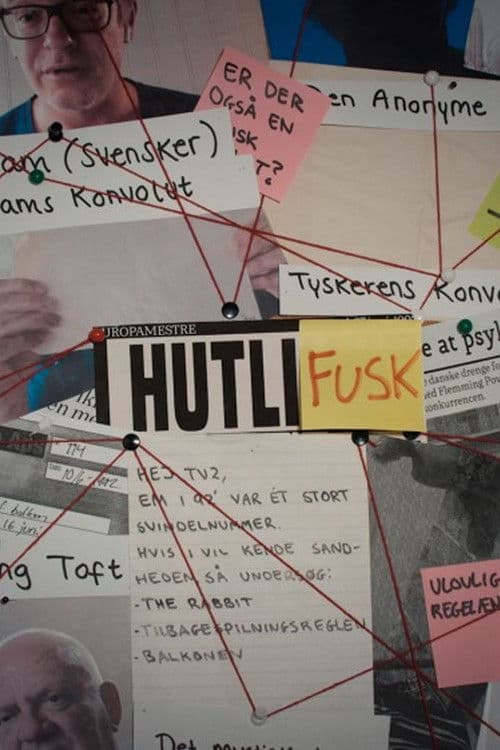 ER DER
OGSÅ EN
Den Anonyme
(Svensker)
ams Konvolut
Tyskerens
UROPAMESTRE
HUTLI
FUSK
e at psy
danske drenge
Flemming
konkurrencen.
114
16 juni
HEJ TV2,
EM I 92' VAR ÉT STORT
SVINDELNUMMER.
HVIS I VIL KENDE SAND-
HEDEN SÅ UNDERSØG:
- THE RABBIT
- TILBAGESPILNINGSREGLEN
- BALKONEN
ng Toft
ULOVLIG
REGELÆN
Det